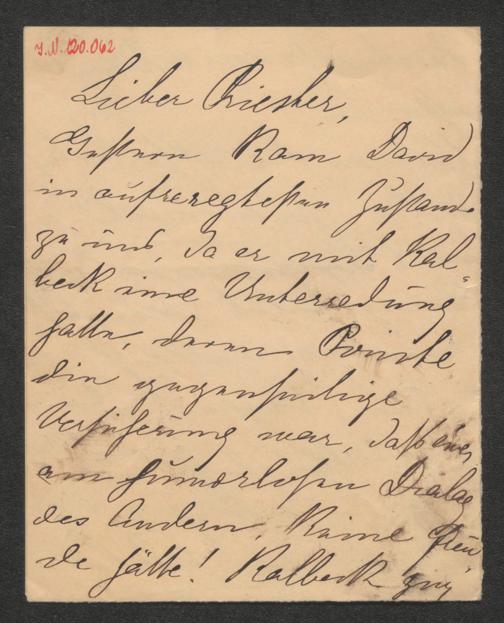 J.N. 120.062
Lieber Priester,
Gestern kam David
in aufgeregtesten Zustand
zu uns, da er mit Kal-
beck eine Unterredung
hatte, deren Pointe
die gegenseitige
Versicherung war, daß einer
am humorlosen Dialog
des Andern, keine Freu-
de hätte! Kalbeck